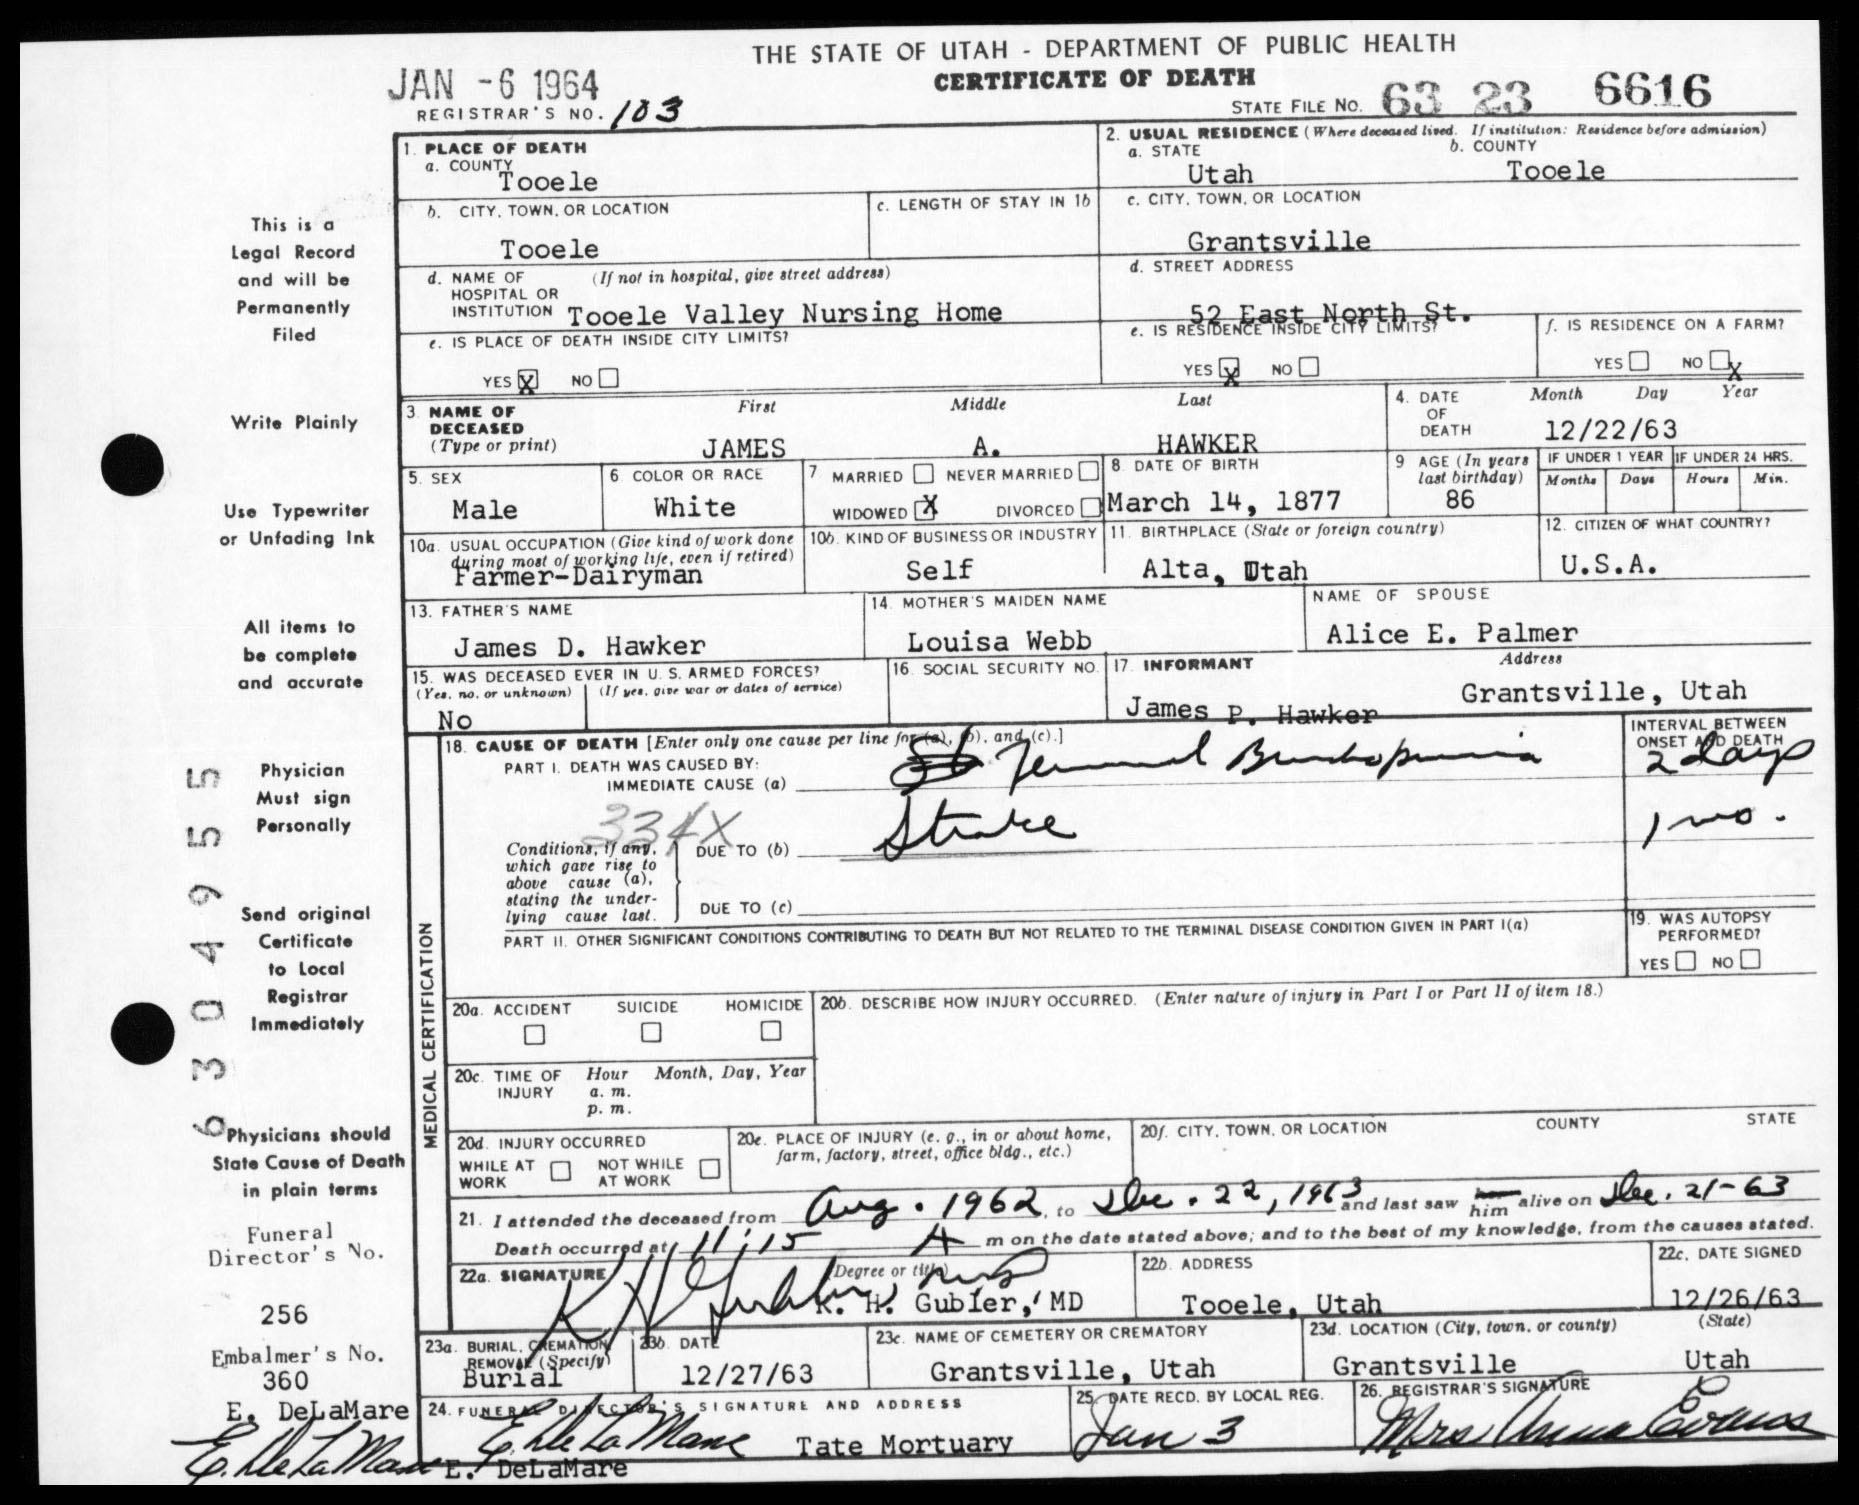 THE STATE OF UTAH - DEPARTMENT OF PUBLIC HEALTH
CERTIFICATE OF DEATH
JAN -6 1964
REGISTRAR'S NO. 103
STATE FILE NO. 63 23 6616
1. PLACE OF DEATH
a. COUNTY
Tooele
2. USUAL RESIDENCE (Where deceased lived. If institution: Residence before admission)
a. STATE b. COUNTY
Utah Tooele
b. CITY, TOWN, OR LOCATION
Tooele
c. LENGTH OF STAY IN 1b
c. CITY, TOWN, OR LOCATION
Grantsville
d. NAME OF HOSPITAL OR INSTITUTION (If not in hospital, give street address)
Tooele Valley Nursing Home
d. STREET ADDRESS
52 East North St.
e. IS PLACE OF DEATH INSIDE CITY LIMITS?
YES X NO
e. IS RESIDENCE INSIDE CITY LIMITS?
YES X NO
f. IS RESIDENCE ON A FARM?
YES NO X
3. NAME OF DECEASED (Type or print)
First Middle Last
JAMES A. HAWKER
4. DATE OF DEATH Month Day Year
12/22/63
5. SEX
Male
6. COLOR OR RACE
White
7 MARRIED NEVER MARRIED
WIDOWED X DIVORCED
8. DATE OF BIRTH
March 14, 1877
9 AGE (In years last birthday)
86
IF UNDER 1 YEAR IF UNDER 24 HRS.
Months Days Hours Min.
10a. USUAL OCCUPATION (Give kind of work done during most of working life, even if retired)
Farmer-Dairyman
10b. KIND OF BUSINESS OR INDUSTRY
Self
11. BIRTHPLACE (State or foreign country)
Alta, Utah
12. CITIZEN OF WHAT COUNTRY?
U.S.A.
13. FATHER'S NAME
James D. Hawker
14. MOTHER'S MAIDEN NAME
Louisa Webb
NAME OF SPOUSE
Alice E. Palmer
15. WAS DECEASED EVER IN U. S. ARMED FORCES?
(Yes, no, or unknown) (If yes, give war or dates of service)
No
16. SOCIAL SECURITY NO.
17. INFORMANT Address
James P. Hawker Grantsville, Utah
MEDICAL CERTIFICATION
18. CAUSE OF DEATH [Enter only one cause per line for (a), (b), and (c).]
PART I. DEATH WAS CAUSED BY:
IMMEDIATE CAUSE (a) Terminal Bronchopneumonia
INTERVAL BETWEEN ONSET AND DEATH
2 days
334X
Conditions, if any, which gave rise to above cause (a), stating the underlying cause last.
DUE TO (b) Stroke
1 mo.
DUE TO (c)
PART II. OTHER SIGNIFICANT CONDITIONS CONTRIBUTING TO DEATH BUT NOT RELATED TO THE TERMINAL DISEASE CONDITION GIVEN IN PART I(a)
19. WAS AUTOPSY PERFORMED?
YES NO
20a. ACCIDENT SUICIDE HOMICIDE
20b. DESCRIBE HOW INJURY OCCURRED. (Enter nature of injury in Part I or Part II of item 18.)
20c. TIME OF INJURY Hour Month, Day, Year
a. m.
p. m.
20d. INJURY OCCURRED
WHILE AT WORK NOT WHILE AT WORK
20e. PLACE OF INJURY (e. g., in or about home, farm, factory, street, office bldg., etc.)
20f. CITY, TOWN, OR LOCATION COUNTY STATE
21. I attended the deceased from Aug. 1962, to Dec. 22, 1963 and last saw her him alive on Dec. 21-63
Death occurred at 11:15 A m on the date stated above; and to the best of my knowledge, from the causes stated.
22a. SIGNATURE (Degree or title)
K H Gubler, MD
K. H. Gubler, MD
22b. ADDRESS
Tooele, Utah
22c. DATE SIGNED
12/26/63
23a. BURIAL, CREMATION, REMOVAL (Specify)
Burial
23b. DATE
12/27/63
23c. NAME OF CEMETERY OR CREMATORY
Grantsville, Utah
23d. LOCATION (City, town, or county) (State)
Grantsville Utah
24. FUNERAL DIRECTOR'S SIGNATURE AND ADDRESS
E. DeLaMare Tate Mortuary
E. DeLaMare
25. DATE RECD. BY LOCAL REG.
Jan 3
26. REGISTRAR'S SIGNATURE
Mrs Anna Evans
This is a
Legal Record
and will be
Permanently
Filed
Write Plainly
Use Typewriter
or Unfading Ink
All items to
be complete
and accurate
Physician
Must sign
Personally
Send original
Certificate
to Local
Registrar
Immediately
Physicians should
State Cause of Death
in plain terms
Funeral
Director's No.
256
Embalmer's No.
360
E. DeLaMare
E. DeLaMare
63049555